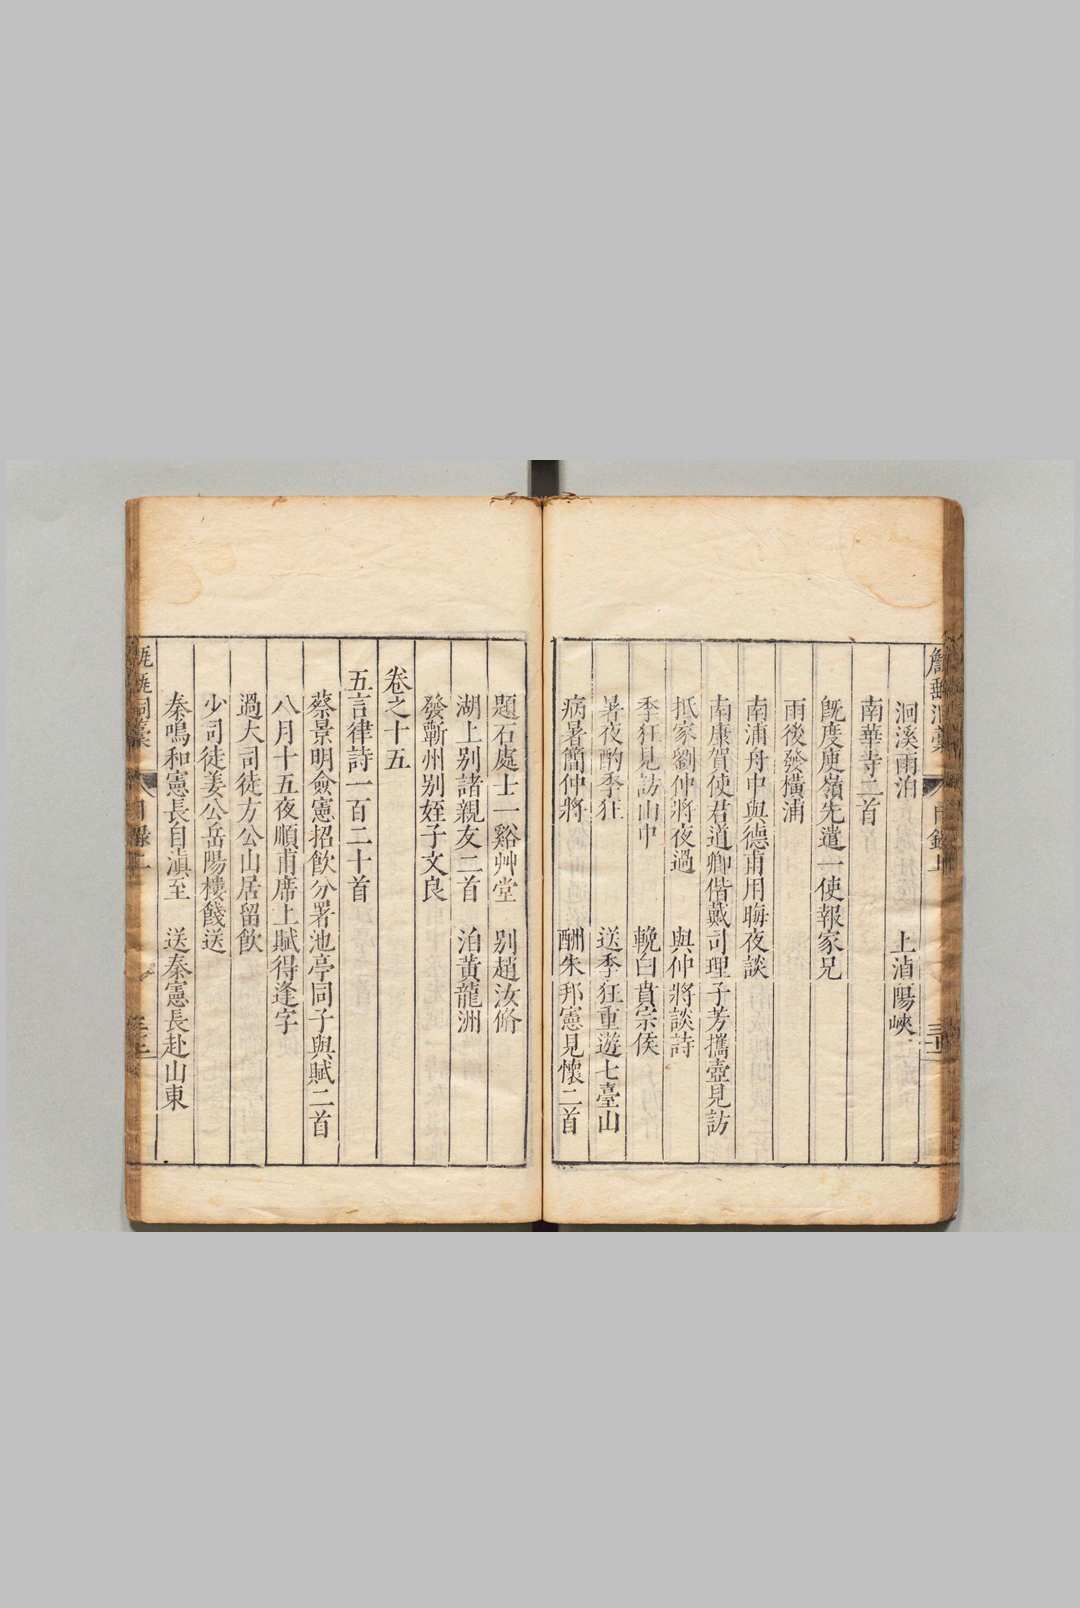 洄溪雨泊　上湞陽峽
南華寺二首
旣度庾嶺先遣一使報家兄
雨後發橫浦
南浦舟中與德甫用晦夜談
南康賀使君道卿偕戴司理子芳攜壺見訪
抵家劉仲將夜過　與仲將談詩
季狂見訪山中　輓白賁宗侯
暑夜酌季狂　送季狂重遊七臺山
病暑簡仲將　酬朱邦憲見懷二首
題石處士一谿艸堂　別趙汝脩
湖上别諸親友二首　泊黃龍洲
發蘄州别姪子文良
卷之十五
五言律詩一百二十首
蔡景明僉憲招飲分署池亭同子與賦二首
八月十五夜順甫席上賦得逢字
過大司徒方公山居留飲
少司徒姜公岳陽樓餞送
秦鳴和憲長自滇至　送秦憲長赴山東